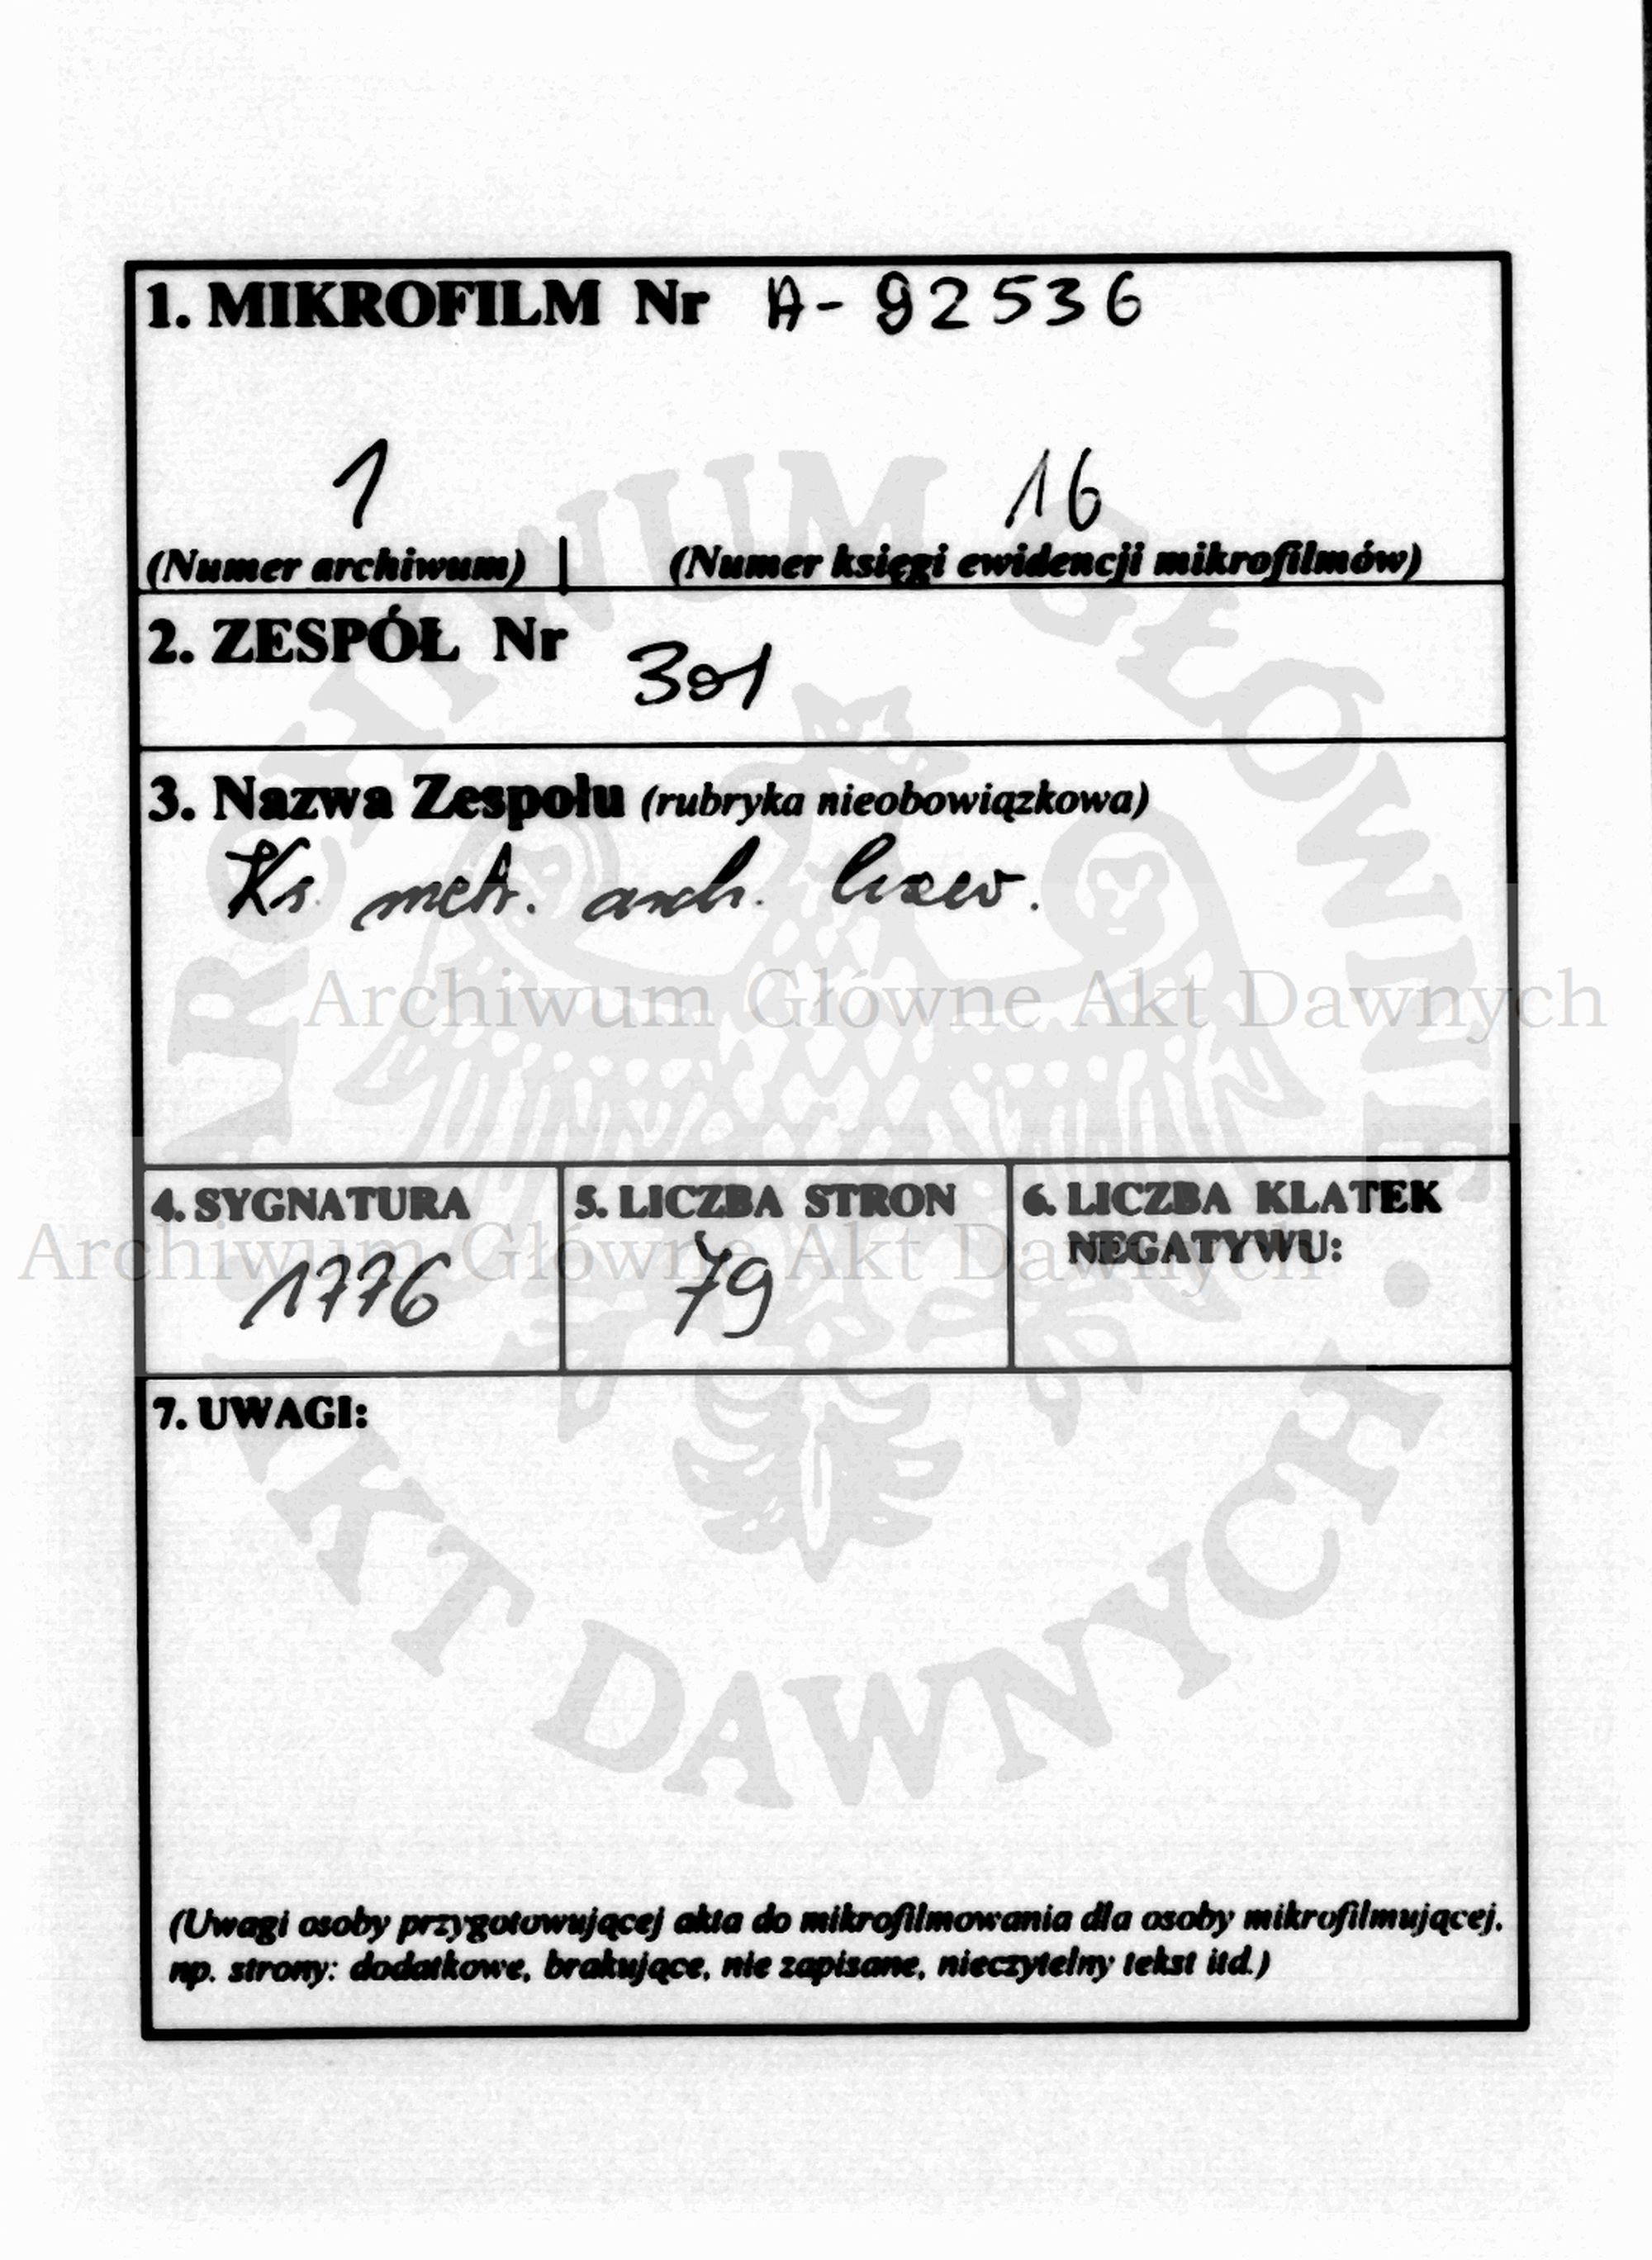 1. MIKROFILM Nr A-92536
1 16
(Numer archiwum) (Numer księgi ewidencji mikrofilmów)
2. ZESPÓŁ Nr 301
3. Nazwa Zespołu (rubryka nieobowiązkowa)
Ks. metr. arch.
Archiwum Główne Akt Dawnych
4. SYGNATURA 5. LICZBA STRON 6. LICZBA KLATEK
NEGATYWU:
Archiwum Główne Akt Dawnych
1776 79
7. UWAGI:
(Uwagi osoby przygotowującej akta do mikrofilmowania dla osoby mikrofilmującej.
np. strony: dodatkowe, brakujące, nie zapisane, nieczytelny tekst itd.)
ARCHIWUM GŁÓWNE • AKT DAWNYCH